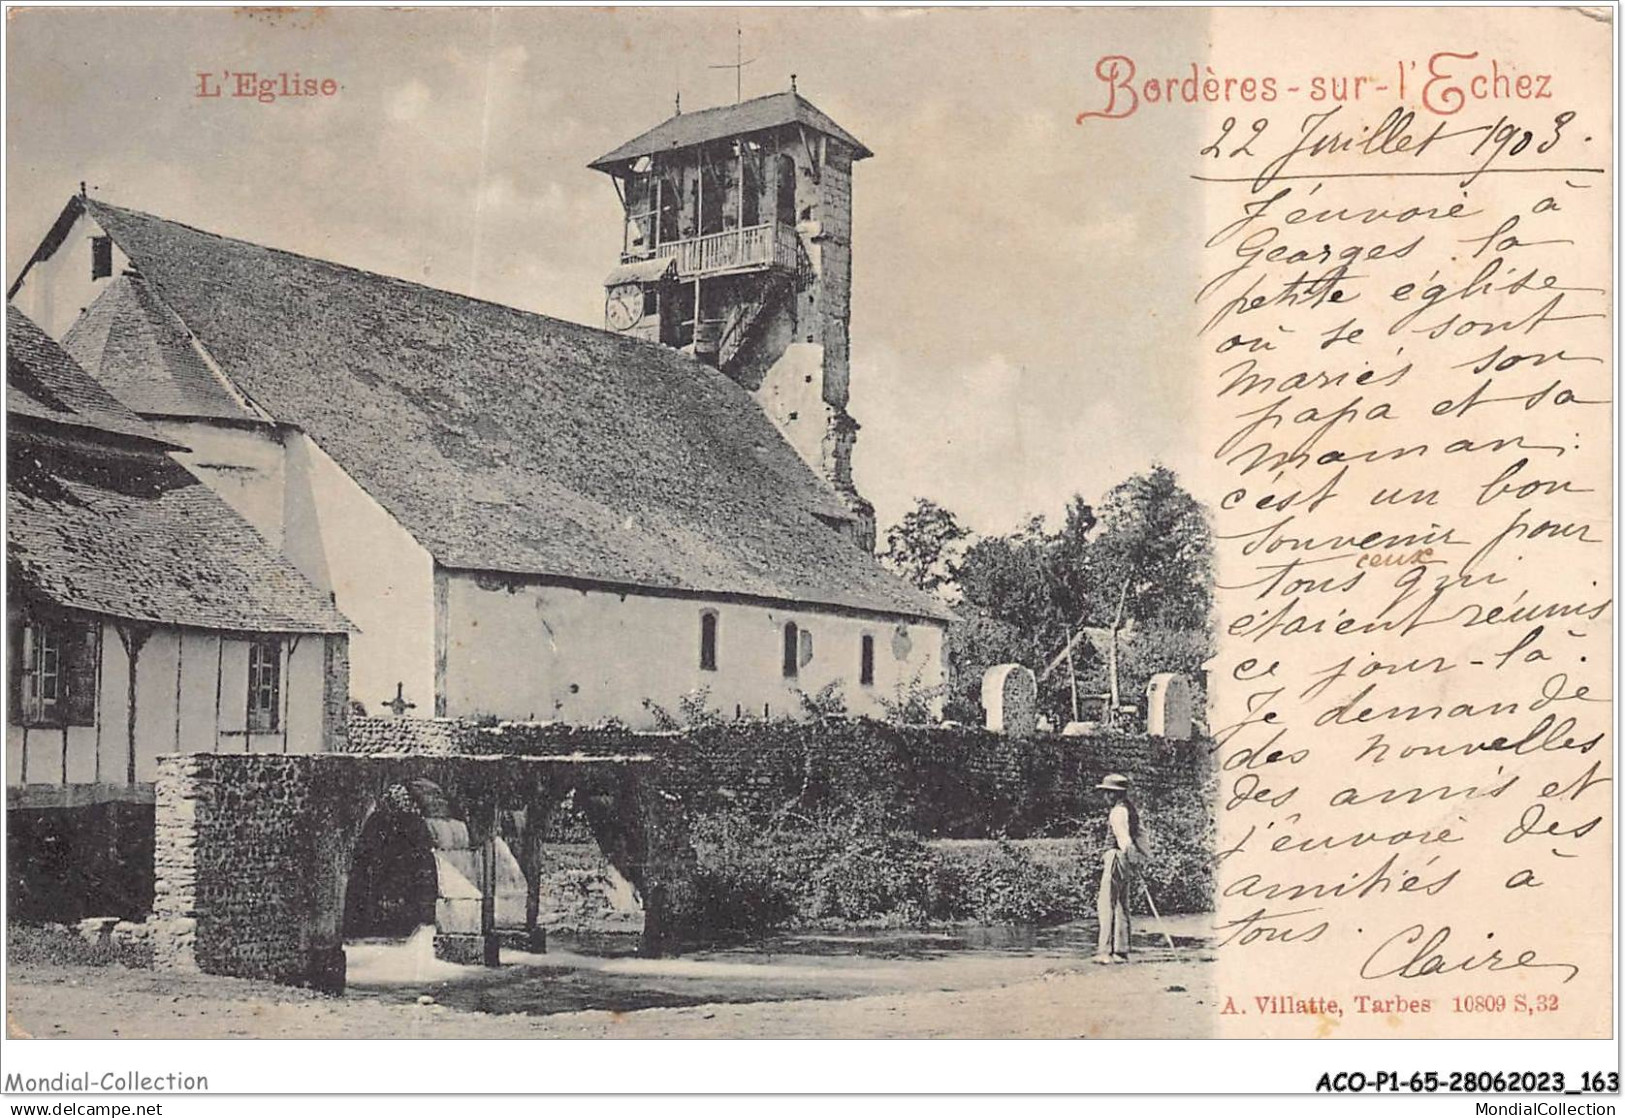 L'Eglise
Bordères-sur-l'Echez
22 Juillet 1903.
J'envoie à
Georges la
petite église
où se sont
mariés son
papa et sa
maman :
c'est un bon
souvenir pour
tous ceux qui
étaient réunis
ce jour-là.
Je demande
des nouvelles
des amis et
j'envoie des
amitiés à
tous.
Claire
A. Villatte, Tarbes 10809 S,32
Mondial-Collection
ACO-P1-65-28062023_163
www.delcampe.net
MondialCollection